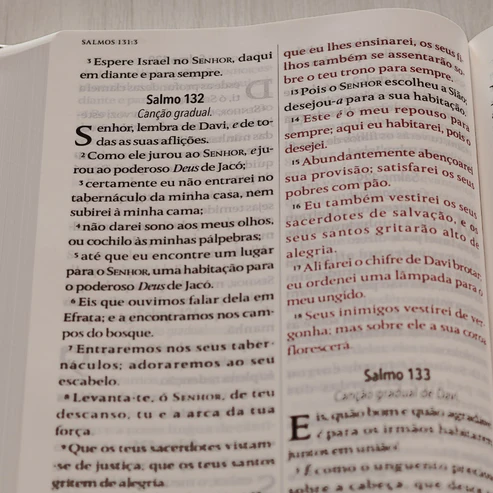 SALMOS 131:3
3 Espere Israel no SENHOR, daqui
em diante e para sempre.
Salmo 132
Canção gradual.
Senhor, lembra de Davi, e de to-
das as suas aflições.
2 Como ele jurou ao SENHOR, e ju-
rou ao poderoso Deus de Jacó;
3 certamente eu não entrarei no
tabernáculo da minha casa, nem
subirei à minha cama;
4 não darei sono aos meus olhos,
ou cochilo às minhas pálpebras;
5 até que eu encontre um lugar
para o SENHOR, uma habitação para
o poderoso Deus de Jacó.
6 Eis que ouvimos falar dela em
Efrata; e a encontramos nos cam-
pos do bosque.
7 Entraremos nos seus taber-
náculos; adoraremos ao seu
escabelo.
8 Levanta-te, ó SENHOR, de teu
descanso, tu e a arca da tua
força.
9 Que os teus sacerdotes vistam-
-se de justiça; que os teus santos
gritem de alegria.
que eu lhes ensinarei, os seus fi-
lhos também se assentarão so-
bre o teu trono para sempre.
13 Pois o SENHOR escolheu a Sião;
desejou-a para a sua habitação.
14 Este é o meu repouso para
sempre; aqui eu habitarei, pois o
desejei.
15 Abundantemente abençoarei
sua provisão; satisfarei os seus
pobres com pão.
16 Eu também vestirei os seus
sacerdotes de salvação, e os
seus santos gritarão alto de
alegria.
17 Ali farei o chifre de Davi brotar;
eu ordenei uma lâmpada para o
meu ungido.
18 Seus inimigos vestirei de ver-
gonha; mas sobre ele a sua coroa
florescerá.
Salmo 133
Canção gradual de Davi.
Eis, quão bom e quão agradável
é para os irmãos habitarem
juntos em união!
2 É como o unguento precioso
sobre a cabeça, que desce